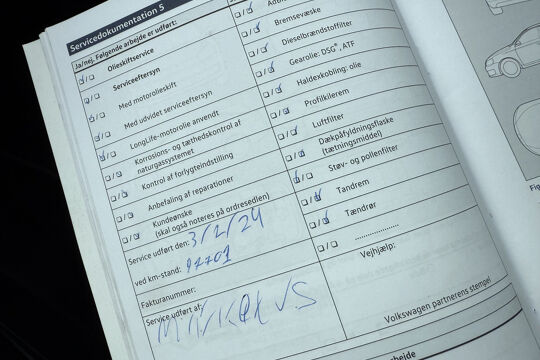 Servicedokumentation 5
Ja/nej. Følgende arbejde er udført:
Olieskiftservice
Serviceeftersyn
Med motorolieskift
Med udvidet serviceeftersyn
LongLife-motorolie anvendt
Korrosions- og tæthedskontrol af
naturgassystemet
Kontrol af forlygteindstilling
Anbefaling af reparationer
Kundeønske
(skal også noteres på ordresedlen)
Service udført den: 3/2/24
ved km-stand: 97701
Fakturanummer:
Service udført af:
Bremsevæske
Dieselbrændstoffilter
Gearolie: DSG®, ATF
Haldexkobling: olie
Profilkilerem
Luftfilter
Dækpåfyldningsflaske
(tætningsmiddel)
Støv- og pollenfilter
Tandrem
Tændrør
Vejhjælp:
Volkswagen partnerens stempel